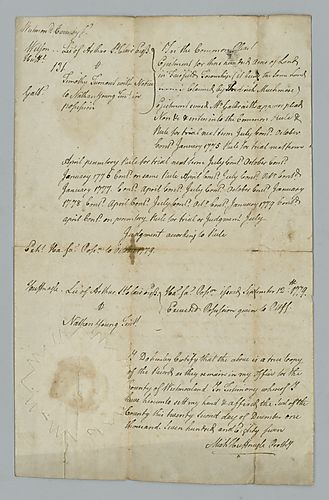 Westmoreland County Ss.
Wilson Lee of Arthur St. Clair Esqr.
v
Timothy Turnout with Notice
to Nathan Young Tent. in
possession
In the Common Pleas
Ejectment for three hundred Acres of Land
in Township
Ejectment served Mr. Galbraith appears pleads
Non & enters into the Common Rule &
Rule for trial next term July Cont. October
Cont. January 1775 Rule for trial next term
April peremtory Rule for trial next term July Cont. October Cont.
January 1776 Cont. on same Rule April Cont. July Cont. Oct. Cont.
January 1777 Cont. April Cont. July Cont. October Cont. January
1778 Cont. April Cont. July Cont. Oct. Cont. January 1779 Cont.
April Cont. on peremtory Rule for trial or Judgment July
Judgment according to Rule
Hab. Fa. Posn. to 1779
Huffnagle Lee of Arthur St. Clair Esqr.
v
Nathan Young Tent.
Hab. Fa. Posn. Issued September 12th 1779
Executed Possession given to Plff.
I Do hereby Certify that the above is a true Copy
of the Record as they remain in my Office for the
County of Westmoreland In Testimony whereof I
have hereunto set my hand & affixed the Seal of the
County this twenty second day of December one
thousand seven hundred and Eighty
Michl. Huffnagle Prothy.